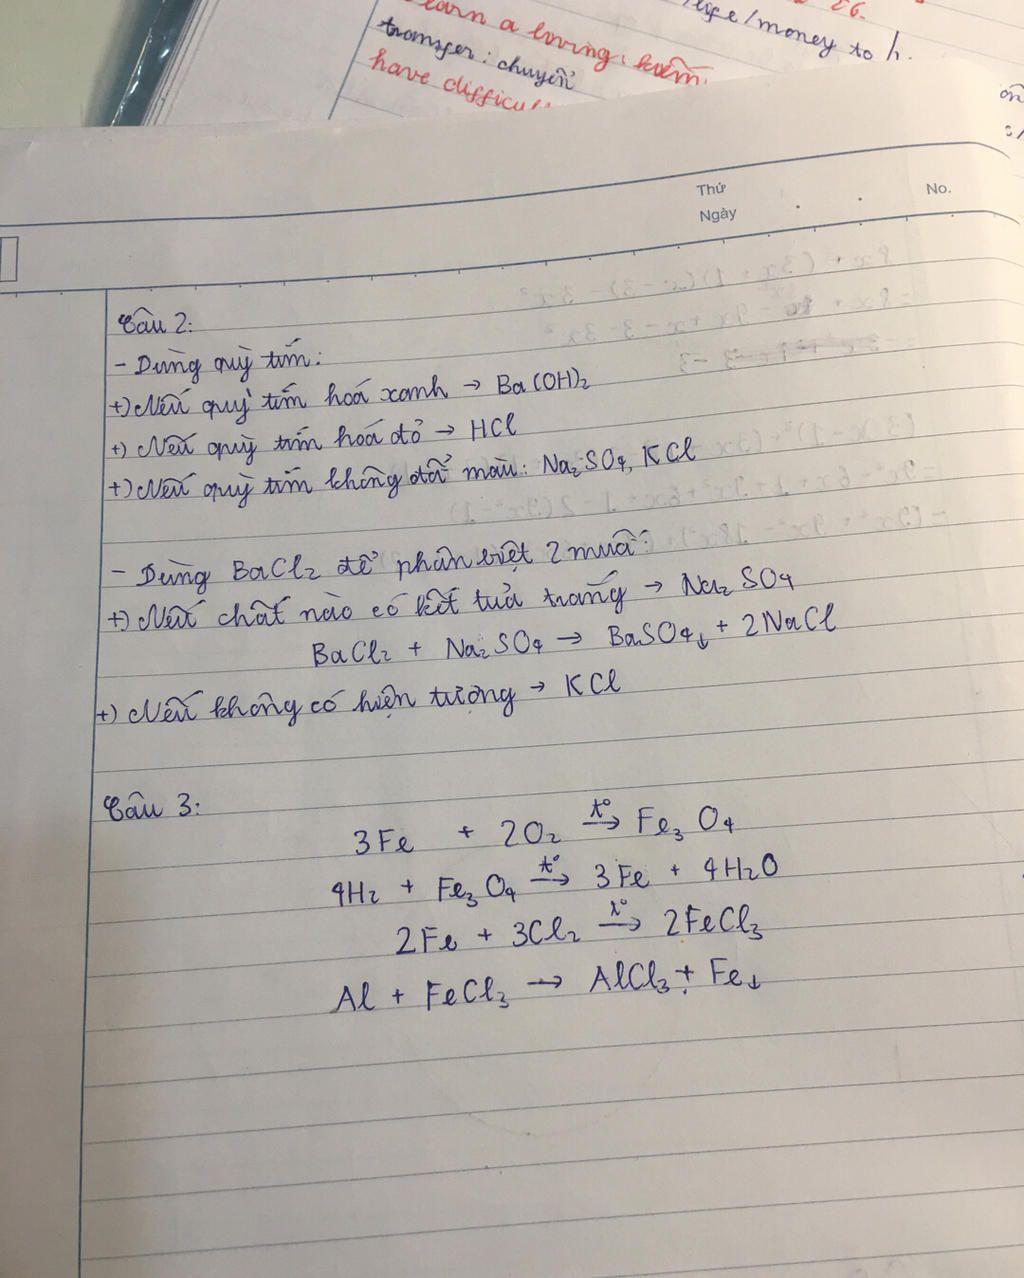 26.
earn a living: kiếm
life/money to h.
transfer: chuyển
have difficul
Thứ
Ngày
No.
Câu 2:
- Dùng quỳ tím:
+) Nếu quỳ tím hoá xanh → Ba(OH)₂
+) Nếu quỳ tím hoá đỏ → HCl
+) Nếu quỳ tím không đổi màu: Na₂SO₄, KCl
- Dùng BaCl₂ để phân biệt 2 muối:
+) Nếu chất nào có kết tủa trắng → Na₂SO₄
BaCl₂ + Na₂SO₄ → BaSO₄↓ + 2NaCl
+) Nếu không có hiện tượng → KCl
Câu 3:
3Fe + 2O₂ t°→ Fe₃O₄
4H₂ + Fe₃O₄ t°→ 3Fe + 4H₂O
2Fe + 3Cl₂ t°→ 2FeCl₃
Al + FeCl₃ → AlCl₃ + Fe↓